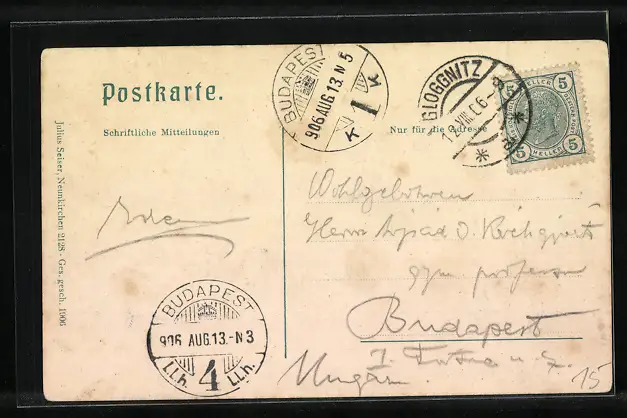 Postkarte.
Schriftliche Mitteilungen
Nur für die Adresse
Julius Seiser, Neunkirchen 2128 - Ges. gesch. 1906
BUDAPEST
906 AUG.13. N 5
1
K K
GLOGGNITZ
12 VIII 06
5 5
5 5
HELLER
Wohlgeboren
Herrn
gym. professor
Budapest
I.
Ungarn
15
BUDAPEST
906 AUG.13.-N 3
I,I,h. 4 I,I,h.